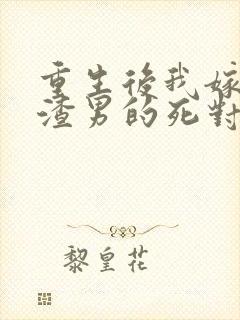 重生後我嫁
渣男的死對
黎皇花